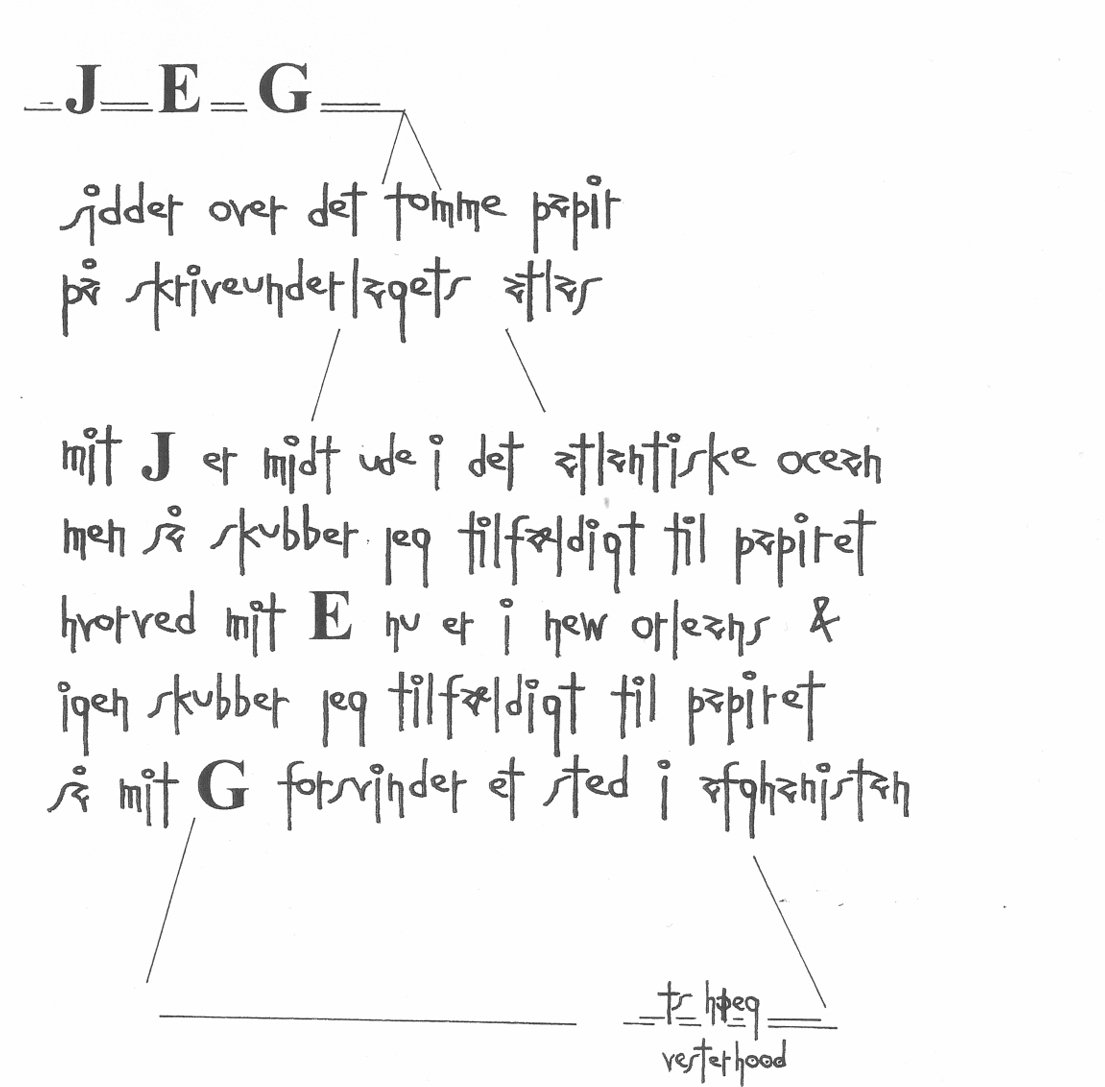 J E G
sidder over det tomme papir
på skriveunderlagets atlas
mit J er midt ude i det atlantiske ocean
men så skubber jeg tilfældigt til papiret
hvorved mit E nu er i new orleans &
igen skubber jeg tilfældigt til papiret
så mit G forsvinder et sted i afghanistan
ts høeg
vesterhood